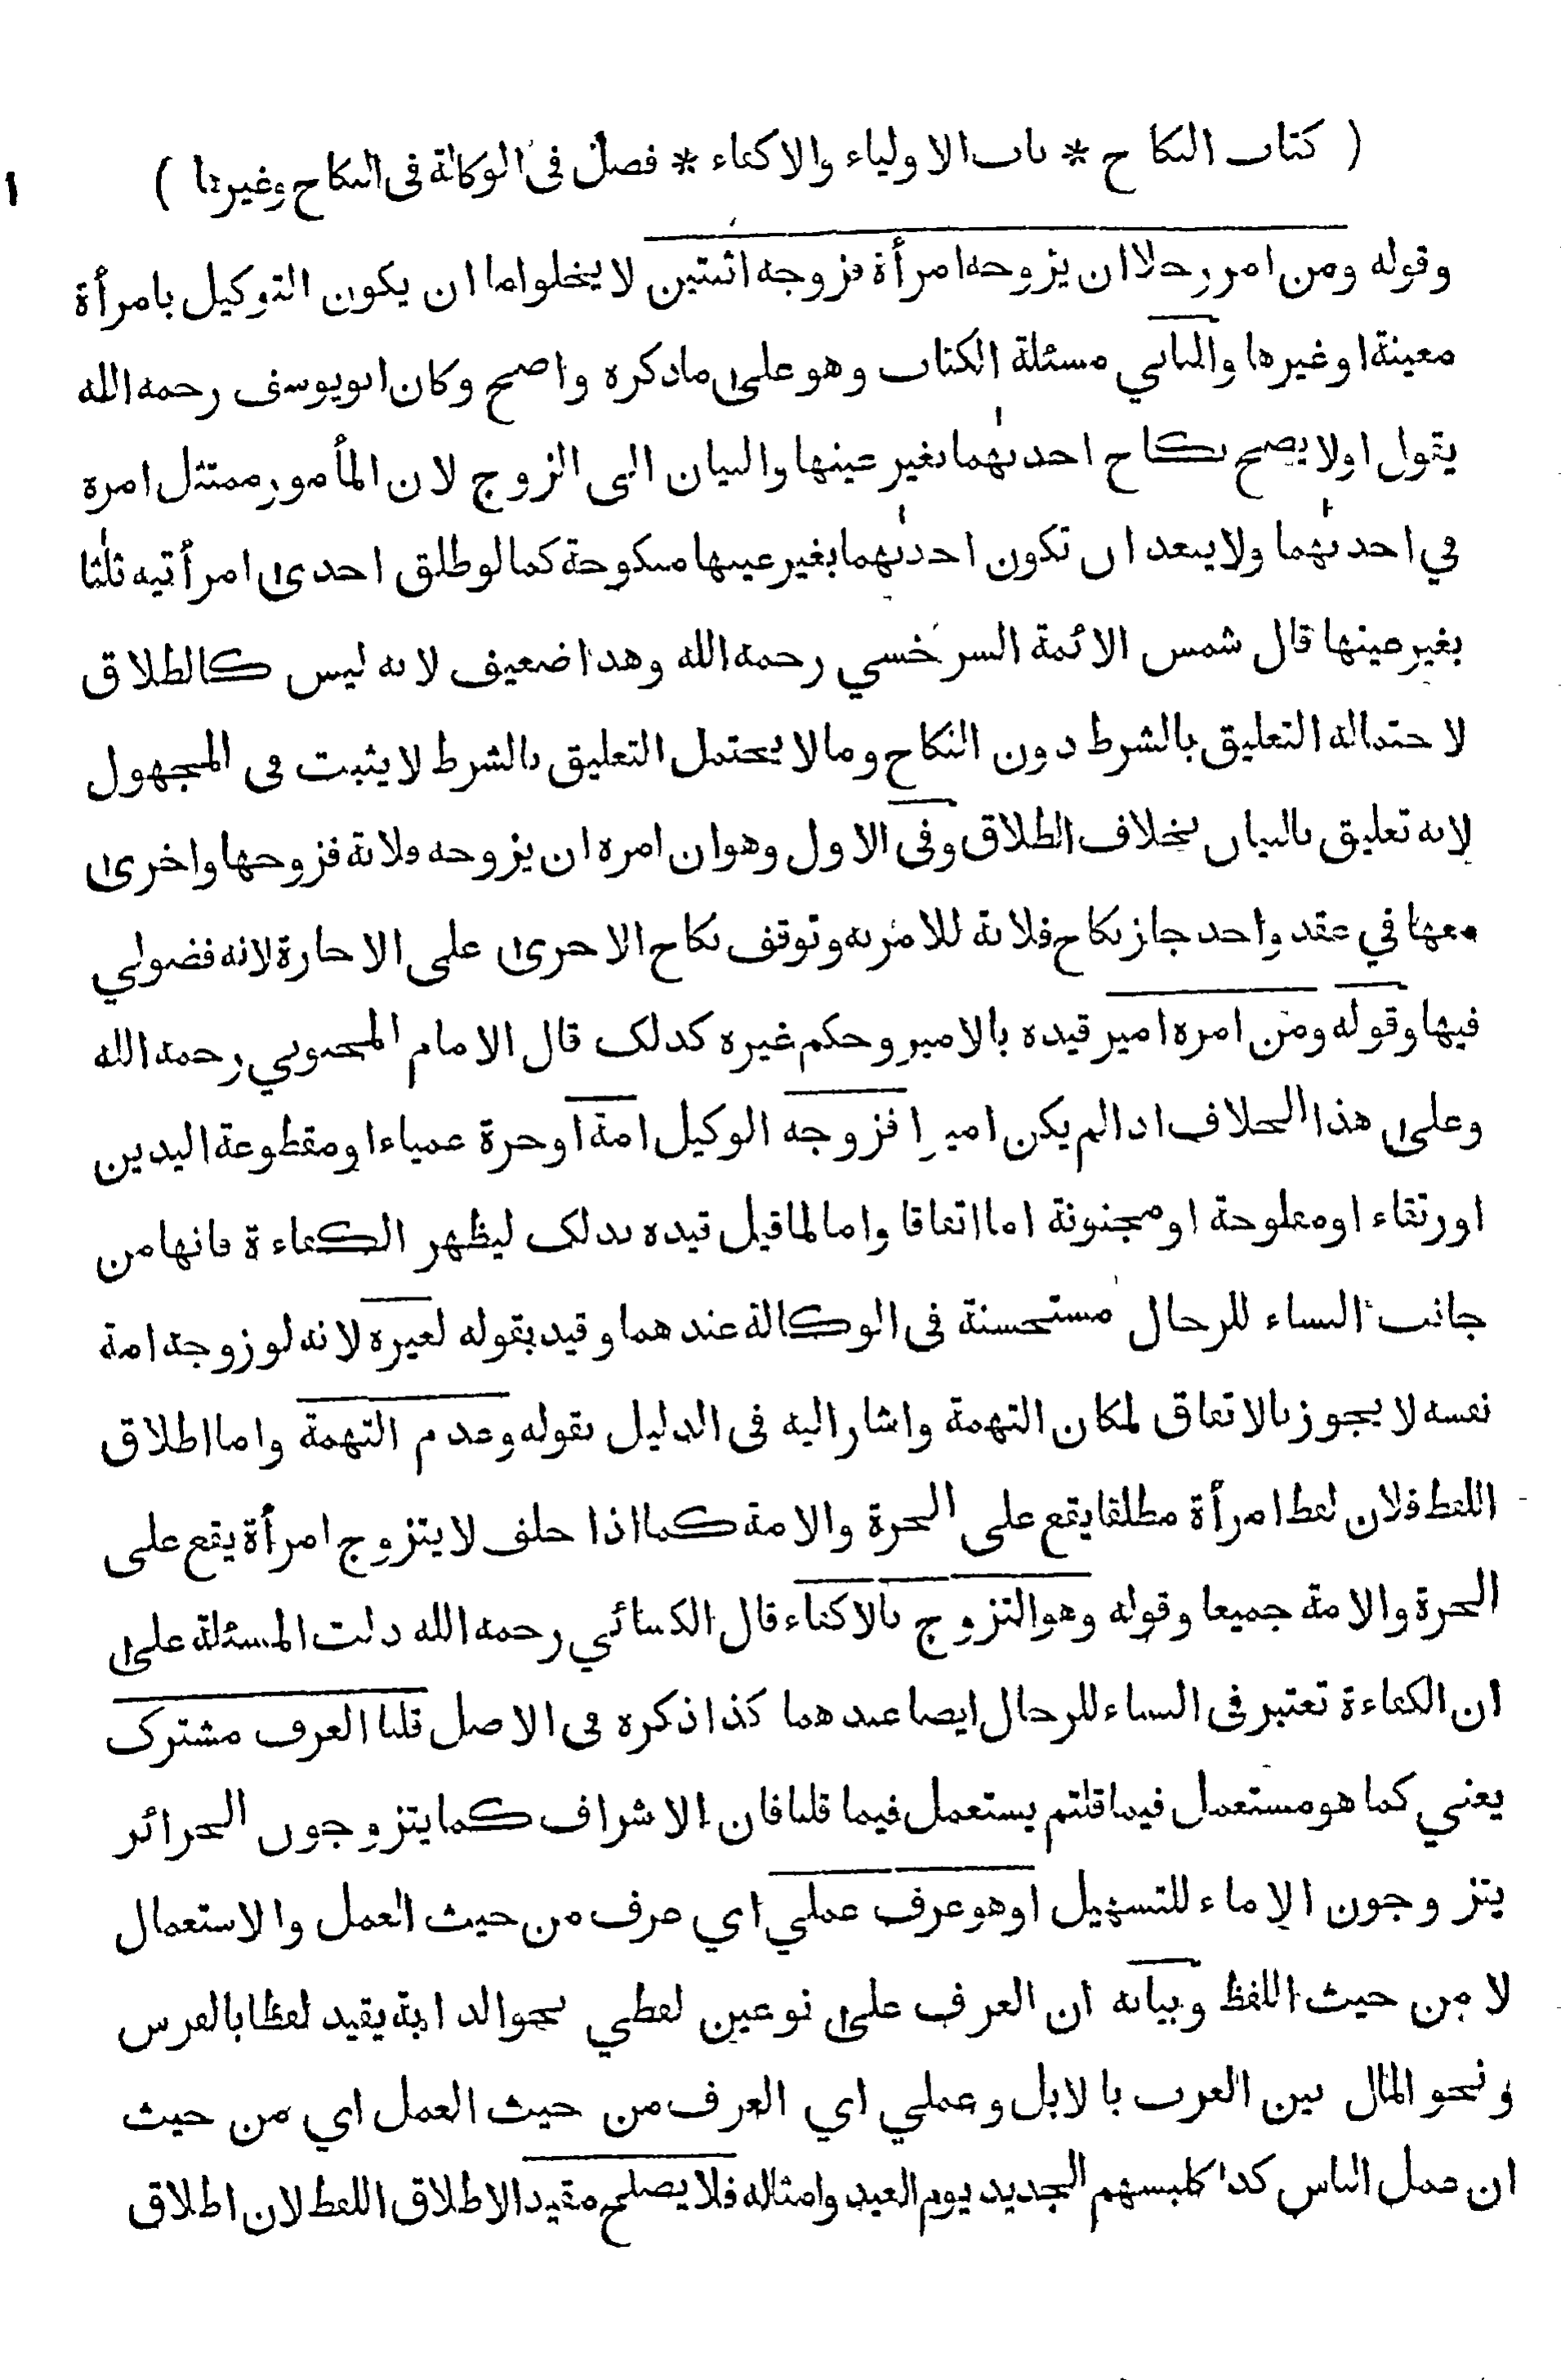 ( كتاب النكاح * باب الاولياء والاكفاء * فصل فى الوكالة فى النكاح وغيرها ) ١
وقوله ومن امر رجلا ان يزوجه امرأة فزوجه اثنتين لا يخلو اما ان يكون التوكيل بامرأة
معينة او غيرها والثاني مسئلة الكتاب وهو على ما ذكره واضح وكان ابو يوسف رحمه الله
يقول اولا يصح نكاح احدىهما بغير عينها والبيان الى الزوج لان المأمور ممتثل امره
في احدىهما ولا يبعد ان تكون احدىهما بغير عينها منكوحة كما لو طلق احدى امرأتيه ثلثا
بغير عينها قال شمس الائمة السرخسي رحمه الله وهذا ضعيف لانه ليس كالطلاق
لاحتماله التعليق بالشرط دون النكاح وما لا يحتمل التعليق بالشرط لا يثبت فى المجهول
لانه تعليق بالبيان بخلاف الطلاق وفى الاول وهو ان امره ان يزوجه فلانة فزوجها واخرى
معها في عقد واحد جاز نكاح فلانة للآمر به وتوقف نكاح الاخرى على الاجازة لانه فضولي
فيها وقوله ومن امره امير قيده بالامير وحكم غيره كذلك قال الامام المحبوبي رحمه الله
وعلى هذا الخلاف اذا لم يكن اميرا فزوجه الوكيل امة او حرة عمياء او مقطوعة اليدين
او رتقاء او مفلوجة او مجنونة اما اتفاقا واما لما قيل قيده بذلك ليظهر الكفاءة فانها من
جانب النساء للرجال مستحسنة فى الوكالة عندهما وقيد بقوله لغيره لانه لو زوجه امة
نفسه لا يجوز بالاتفاق لمكان التهمة واشار اليه فى الدليل بقوله وعدم التهمة واما اطلاق
اللفظ فلان لفظ امرأة مطلقا يقع على الحرة والامة كما اذا حلف لا يتزوج امرأة يقع على
الحرة والامة جميعا وقوله وهو التزوج بالاكفاء قال الكسائي رحمه الله دلت المسئلة على
ان الكفاءة تعتبر فى النساء للرجال ايضا عندهما كذا ذكره فى الاصل قلنا العرف مشترك
يعني كما هو مستعمل فيما قلتم يستعمل فيما قلنا فان الاشراف كما يتزوجون الحرائر
يتزوجون الاماء للتسهيل او هو عرف عملي اي عرف من حيث العمل والاستعمال
لا من حيث اللفظ وبيانه ان العرف على نوعين لفظي نحو الدابة يقيد لفظا بالفرس
ونحو المال بين العرب بالابل وعملي اي العرف من حيث العمل اي من حيث
ان عمل الناس كذا كلبسهم الجديد يوم العيد وامثاله فلا يصلح مقيدا لاطلاق اللفظ لان اطلاق